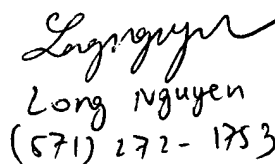 Long Nguyen
Long Nguyen
(571) 272-1753